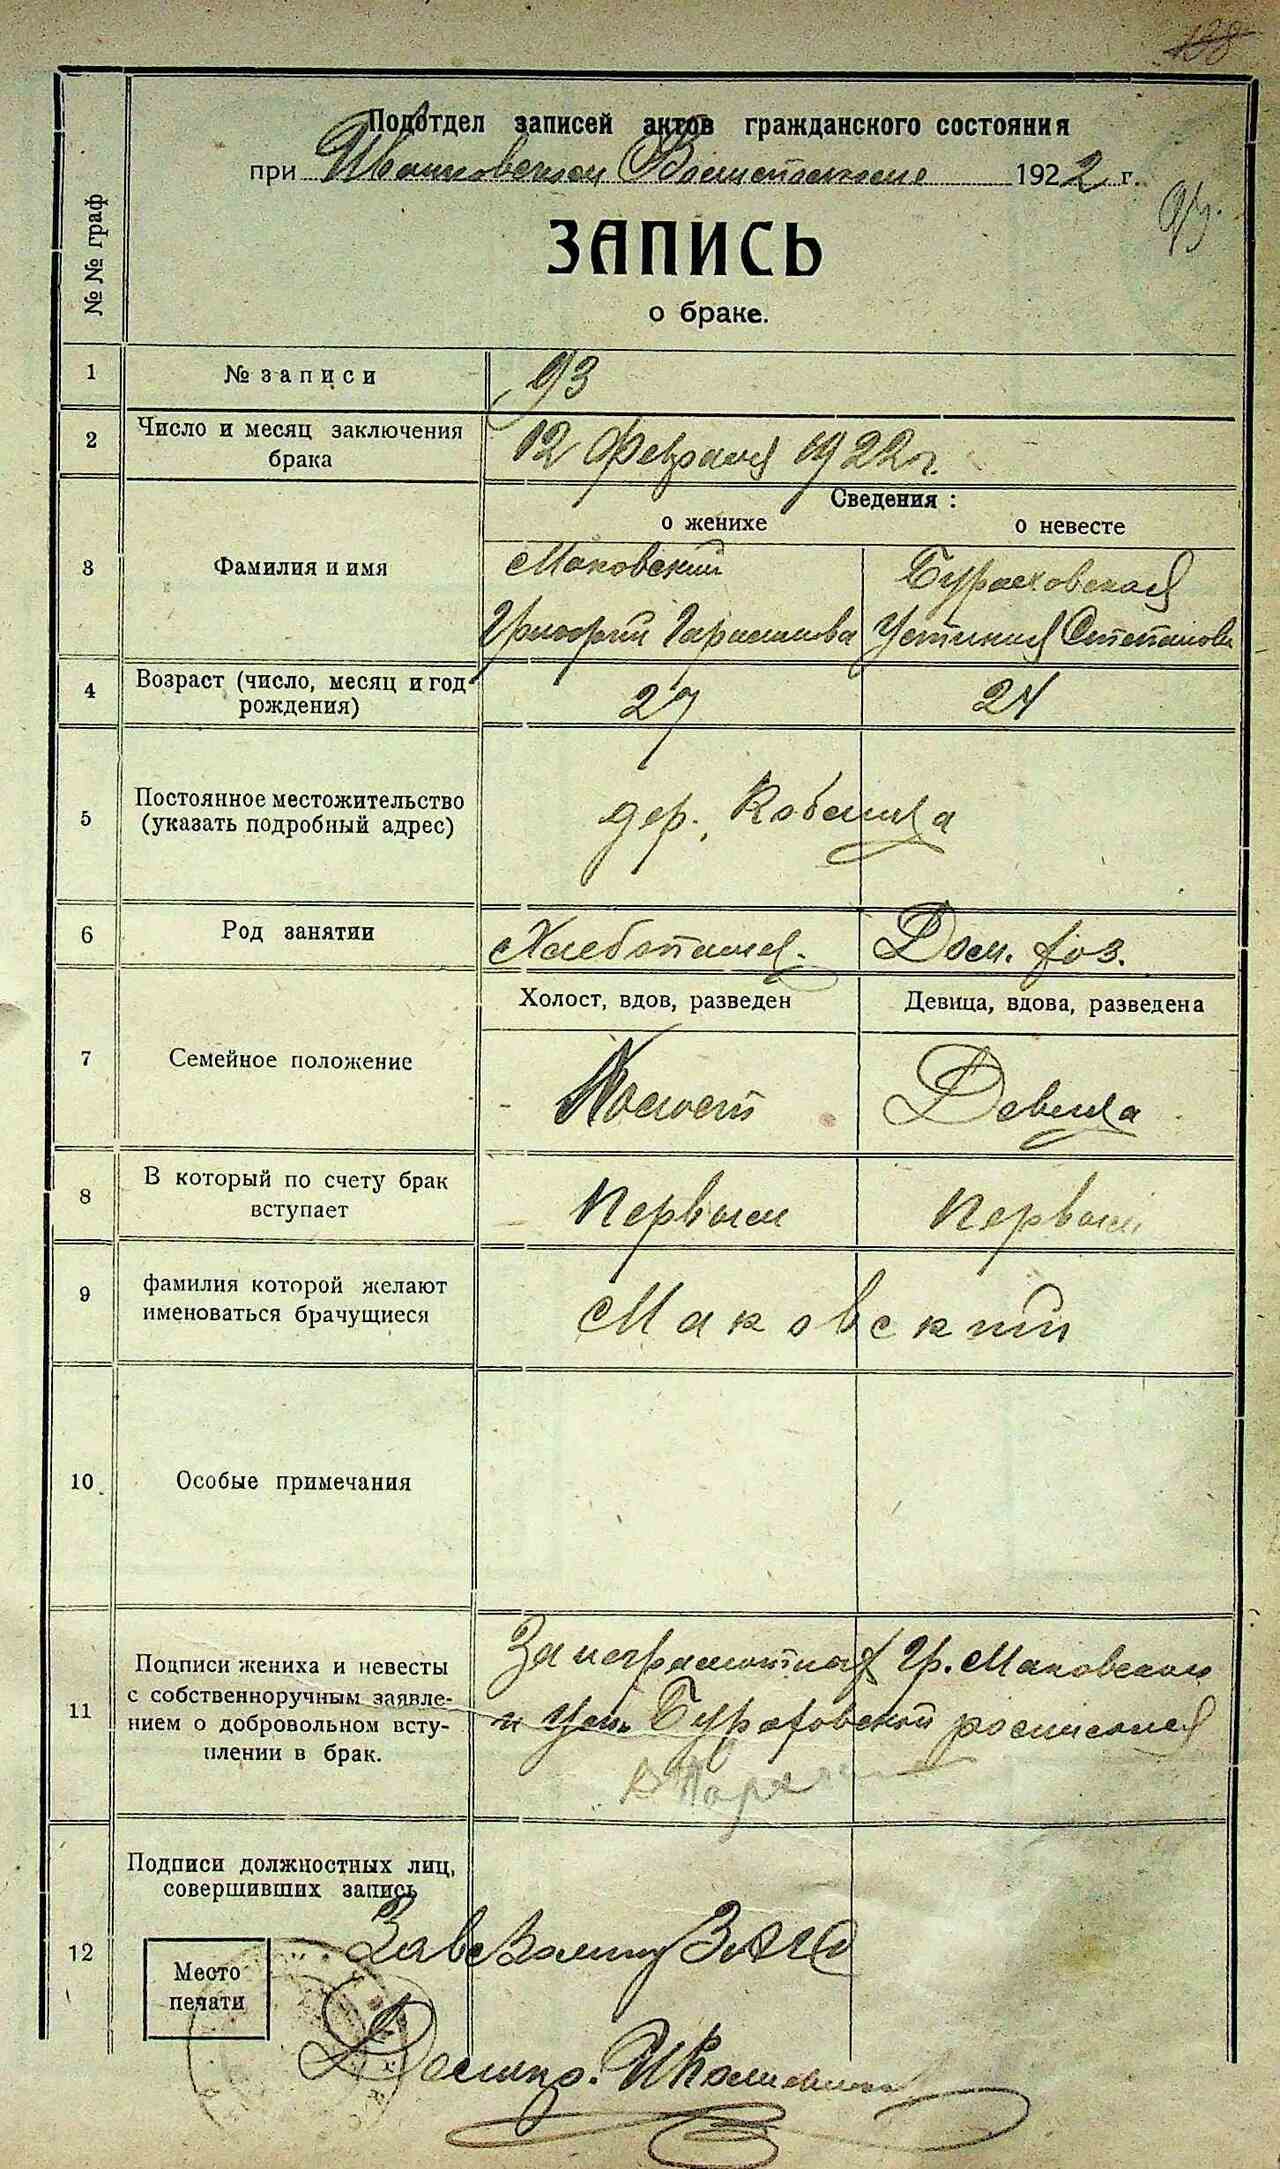 138
Подотдел записей актов гражданского состояния
при Ивановском Волисполкоме 1922 г.
93
№№ граф
ЗАПИСЬ
о браке.
1 № записи 93
2 Число и месяц заключения
брака
12 февраля 1922 г.
Сведения:
о женихе о невесте
3 Фамилия и имя
Маковский Бураховская
Григорий Гарасимова Устиния Степанова
4 Возраст (число, месяц и год
рождения)
27 24
5 Постоянное местожительство
(указать подробный адрес)
дер. Кобелица
6 Род занятии Хлебопашец. Дом. хоз.
Холост, вдов, разведен Девица, вдова, разведена
7 Семейное положение
Холост Девица
8 В который по счету брак
вступает
Первым Первым
9 фамилия которой желают
именоваться брачущиеся
Маковский
10 Особые примечания
11 Подписи жениха и невесты
с собственноручным заявле-
нием о добровольном всту-
плении в брак.
За неграмотных Гр. Маковского
и Уст. Бураховской росписался
12 Подписи должностных лиц,
совершивших запись
Место
печати
Делопр.